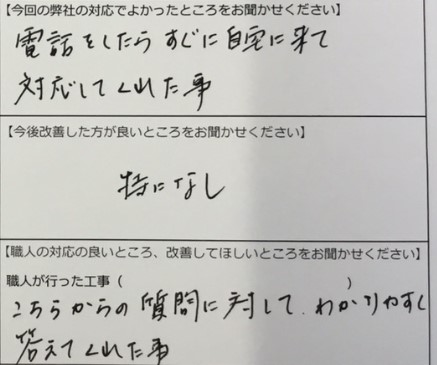 【今回の弊社の対応でよかったところをお聞かせください】
電話をしたらすぐに自宅に来て
対応してくれた事
【今後改善した方が良いところをお聞かせください】
特になし
【職人の対応の良いところ、改善してほしいところをお聞かせください】
職人が行った工事（　　　　　　　　　　　　　　　　）
こちらからの質問に対して、わかりやすく
答えてくれた事